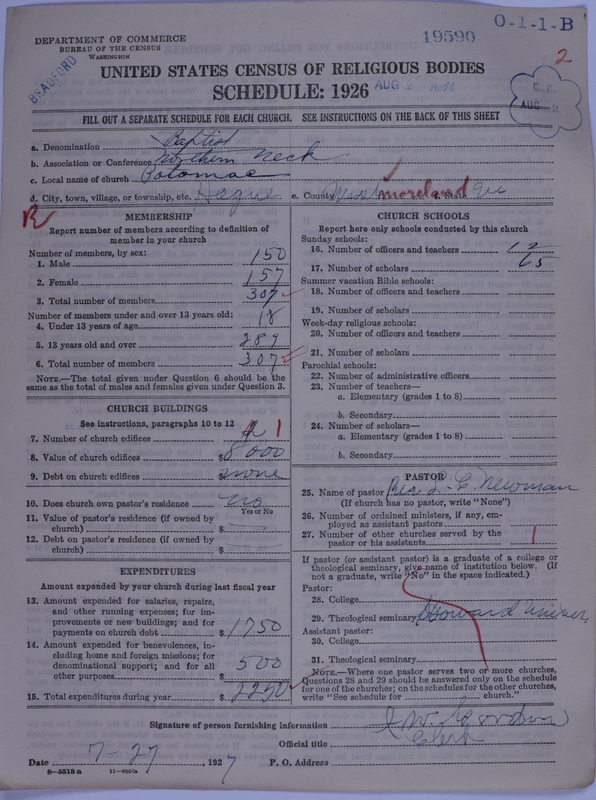 DEPARTMENT OF COMMERCE
BUREAU OF THE CENSUS
WASHINGTON
BRADFORD
19590
O-1-1-B
2
UNITED STATES CENSUS OF RELIGIOUS BODIES
SCHEDULE: 1926
AUG 2
AUG 2
FILL OUT A SEPARATE SCHEDULE FOR EACH CHURCH. SEE INSTRUCTIONS ON THE BACK OF THIS SHEET
a. Denomination Baptist
b. Association or Conference Northern Neck
c. Local name of church Potomac
d. City, town, village, or township, etc. Hague e. County Westmoreland f. State Va
R
MEMBERSHIP
Report number of members according to definition of member in your church
Number of members, by sex:
1. Male 150
2. Female 157
3. Total number of members 307
Number of members under and over 13 years old:
4. Under 13 years of age 18
5. 13 years old and over 289
6. Total number of members 307
NOTE.—The total given under Question 6 should be the
same as the total of males and females given under Question 3.
CHURCH BUILDINGS
See instructions, paragraphs 10 to 12
7. Number of church edifices 1
8. Value of church edifices $ 8000
9. Debt on church edifices $ none
10. Does church own pastor's residence no
Yes or No
11. Value of pastor's residence (if owned by
church) $
12. Debt on pastor's residence (if owned by
church) $
EXPENDITURES
Amount expended by your church during last fiscal year
13. Amount expended for salaries, repairs,
and other running expenses; for im-
provements or new buildings; and for
payments on church debt $ 1750
14. Amount expended for benevolences, in-
cluding home and foreign missions; for
denominational support; and for all
other purposes $ 500
15. Total expenditures during year $ 2250
CHURCH SCHOOLS
Report here only schools conducted by this church
Sunday schools:
16. Number of officers and teachers 12
17. Number of scholars 65
Summer vacation Bible schools:
18. Number of officers and teachers
19. Number of scholars
Week-day religious schools:
20. Number of officers and teachers
21. Number of scholars
Parochial schools:
22. Number of administrative officers
23. Number of teachers—
a. Elementary (grades 1 to 8)
b. Secondary
24. Number of scholars—
a. Elementary (grades 1 to 8)
b. Secondary
PASTOR
25. Name of pastor Rev. L. C. Newman
(If church has no pastor, write "None")
26. Number of ordained ministers, if any, em-
ployed as assistant pastors
27. Number of other churches served by the
pastor or his assistants 1
If pastor (or assistant pastor) is a graduate of a college or
theological seminary, give name of institution below. (If
not a graduate, write "No" in the space indicated.)
Pastor:
28. College
29. Theological seminary Howard Univer.
Assistant pastor:
30. College
31. Theological seminary
NOTE.—Where one pastor serves two or more churches,
Questions 28 and 29 should be answered only on the schedule
for one of the churches; on the schedules for the other churches,
write "See schedule for church."
Signature of person furnishing information
Official title Clerk
Date 7-27, 1927 P. O. Address
8-5518a 11-9054a